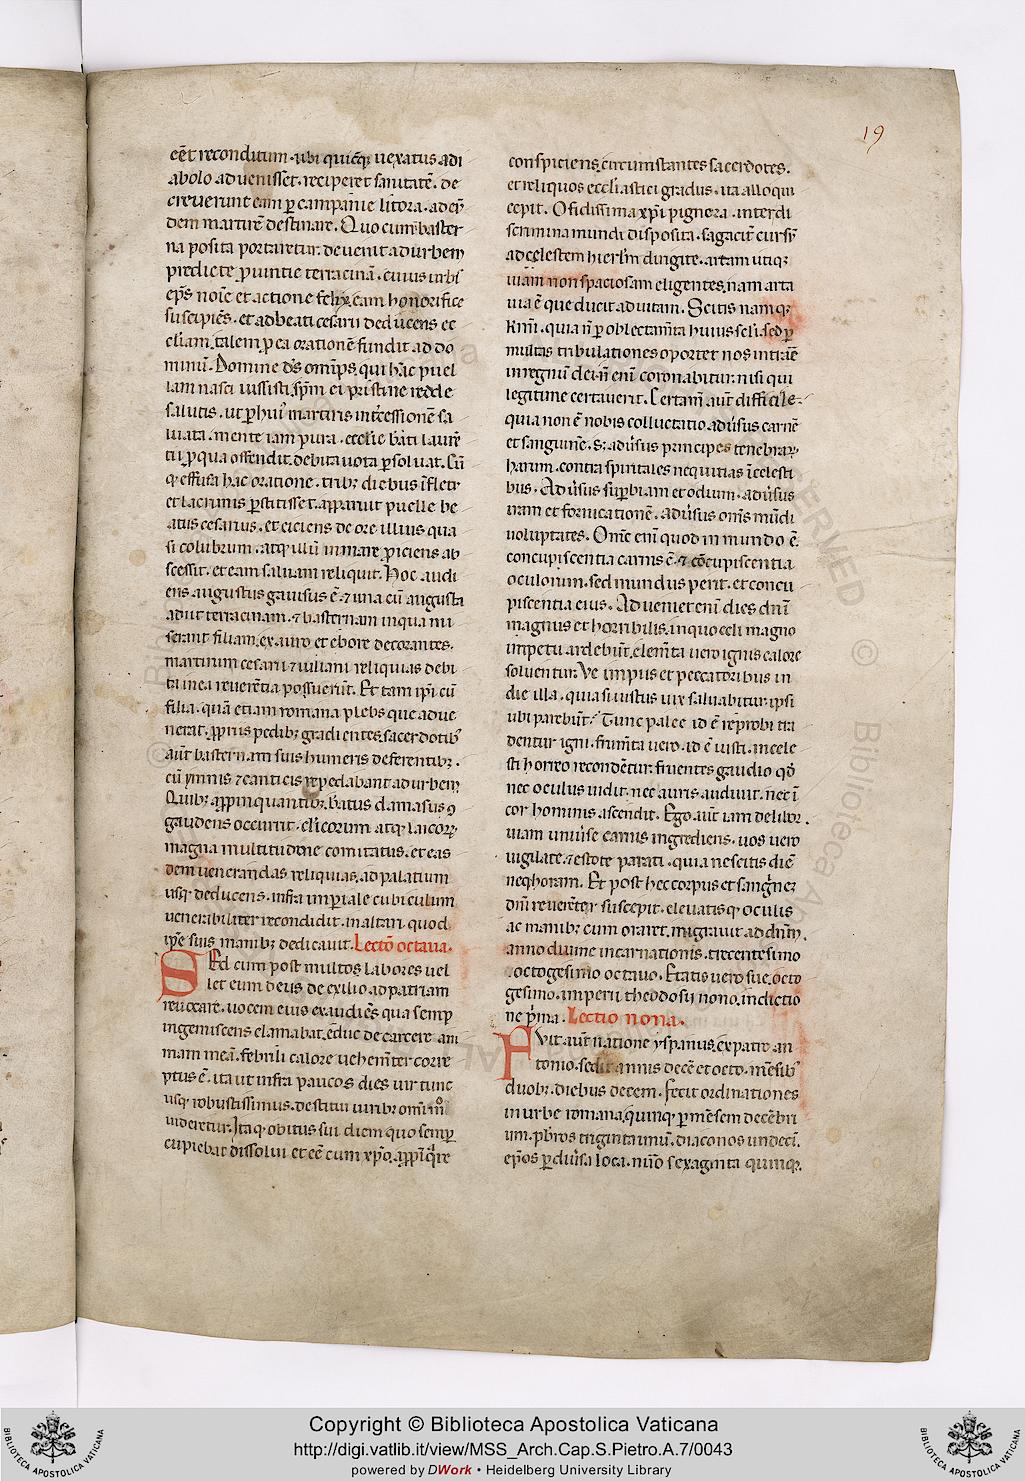 19
eēt reconditum. ubi quicūq; uexatus a di
abolo aduenisset. reciperet sanitatē. de
creuerunt eam p campanie litora. ad eūdem
martirē destinare. Quo cum baster
na posita portaretur. deuenit ad urbem
predicte puintie terracinā. cuius urbis
ep̄s noīe et actione felix, eam honorifice
suscipiēs. et ad beati cesarii deducens ec
cliam, talem p ea orationē fundit ad do
minū. Domine d̄s om̄ps, qui hāc puel
lam nasci iussisti, sp̄m ei pristine redde
salutis. ut p hui' martiris int̄cessionē sa
luata. mente iam pura. ecclie b̄ati laurē
tii, p qua offendit. debita uota psoluat. Cū
q; effusa hac oratione. trib; diebus ī fletu
et lacrimis pstitisset. apparuit puelle be
atus cesarius. et eiciens de ore illius qua
si colubrum. atq; illū in mare piciens ab
scessit. et eam saluam reliquit. Hoc audi
ens augustus gauisus ē. ⁊ una cū augusta
adiit terracinam. ⁊ basternam in qua mi
serant filiam, ex auro et ebore decorantes.
martirum cesarii ⁊ iuliani reliquias debi
ta in ea reuerētia possuerūt. Et tam ip̄i cū
filia. quā etiam romana plebs que adue
nerat. ppriis pedib; gradientes, sacerdotib'
aūt basternam suis humeris deferentib;.
cū ymnis ⁊ canticis repedabant ad urbem
Quib; appinquantib;, b̄atus damasus 9
gaudens occurrit. clicorum atq; laicor;
magna multitudine comitatus. et eas
dem uenerandas reliquias, ad palatium
usq; deducens. infra imperiale cubiculum
uenerabiliter recondidit. in altari quod
ip̄e suis manib; dedicauit. Lectō octaua.
Sed cum post multos labores uel
let eum deus de exilio ad patriam
reuocare. uocem eius exaudiēs qua semp
ingemiscens clamabat, ēduc de carcere ani
mam meā. febrili calore uehem̄ter corre
ptus ē. ita ut infra paucos dies uir tunc
usq; robustissimus. destitui uirib; omīmo
uideretur. Itaq; obitus sui diem quo semp
cupiebat dissolui et eē cum xp̄o, appīq̄re
conspitiens, circumstantes sacerdotes.
et reliquos eccl̄iastici gradus. ita alloqui
cepit. O fidissima xp̄i pignora. inter di
scrimina mundi disposita. sagacit̄ cursū
ad celestem hierlm̄ dirigite. artam utiq;
uiam non spaciosam eligentes, nam arta
uia ē que ducit ad uitam. Scitis namq;
Km̄i. quia n̄ p oblectam̄ta huius seli. sed p
multas tribulationes oportet nos intrare
in regnū dei. n̄ enī coronabitur. nisi qui
legitime certauerit. Certam̄ aūt difficile.
quia non ē nobis colluctatio adūsus carnē
et sanguinē. s; adūsus principes tenebrar;
harum. contra spiritales nequitias ī celesti
bus. Adūsus supbiam et odium. adūsus
iram et fornicationē. adūsus om̄s mūdi
uoluptates. Om̄e enī quod in mundo ē.
concupiscentia carnis ē. ⁊ cōcupiscentia
oculorum. sed mundus perit. et concu
piscentia eius. Adueniet enī dies dn̄i
magnus et horribilis. in quo celi magno
impetu ardebūt, elem̄ta uero ignis calore
soluentur. Ve impiis et peccatoribus in
die illa. quia si iustus uix saluabitur. ipsi
ubi parebūt? Tunc palee id ē reprobi tra
dentur igni. frum̄ta uero. id ē iusti. in cele
sti horreo recondētur. fruentes gaudio qd̄
nec oculus uidit. nec auris audiuit. nec ī
cor hominis ascendit. Ego aūt iam delibor.
uiam uniūse carnis ingrediens. uos uero
uigilate. ⁊ estote parati. quia nescitis diē
neq; horam. Et post hec corpus et sanguinē
dn̄i reuerēter suscepit. eleuatisq; oculis
ac manib; cum oraret. migrauit ad dn̄m.
anno diuine incarnationis. trecentesimo
octogesimo octauo. Etatis uero sue, octo
gesimo. imperii theodosii nono. indictio
ne p̄ma. Lectio nona.
Fuit aūt natione yspanus, ex patre an
tonio. sedit annis decē et octo. mēsib'
duob;. diebus decem. fecit ordinationes
in urbe romana, quinq; p mēsem decēbri
um. pb̄ros triginta unū. diaconos undecī.
ep̄os p diūsa loca. nūo sexaginta quinq;.
Copyright © Biblioteca Apostolica Vaticana
http://digi.vatlib.it/view/MSS_Arch.Cap.S.Pietro.A.7/0043
powered by DWork • Heidelberg University Library
BIBLIOTECA APOSTOLICA VATICANA
BIBLIOTECA APOSTOLICA VATICANA